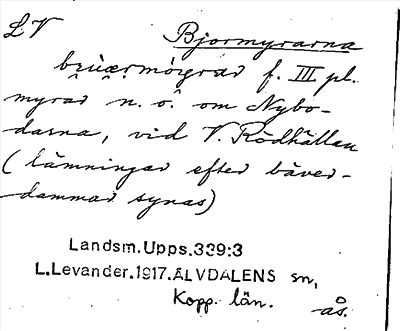 LV Bjormyrarna
brùærmörgrar f. III pl.
myrar n. o. om Nybo-
darna, vid V. Rödhällan
(lämningar efter bäver-
dammar synas)
Landsm. Upps. 339:3
L. Levander. 1917. ÄLVDALENS sn,
Kopp. län.
ås.